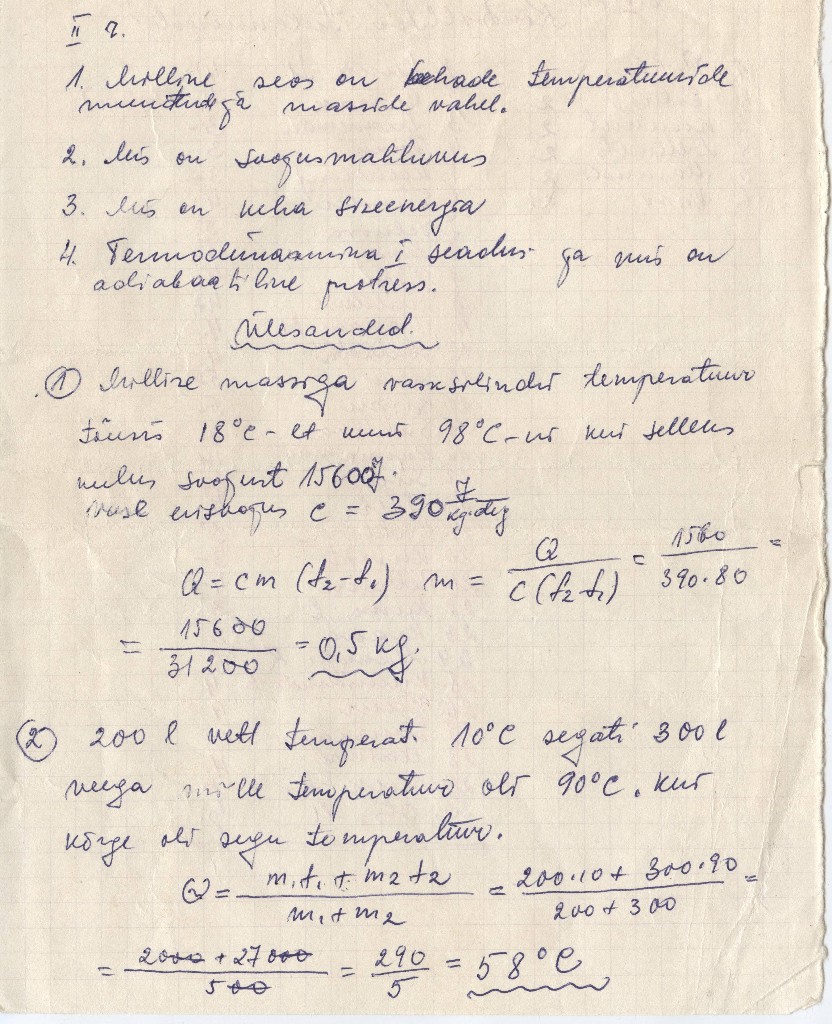 II r.
1. Milline seos on kehade temperatuuride
muutuste ja masside vahel.
2. Mis on soojusmahtuvus
3. Mis on keha siseenergia
4. Termodünaamika I seadus ja mis on
adiabaatiline protsess.
Ülesanded.
① Millise massiga vasksilindri temperatuur
tõusis 18°C-lt kuni 98°C-ni kui selleks
kulus soojust 15600 J.
vase erisoojus c = 390 J/kg·deg
Q = cm (t₂-t₁) m = Q/c(t₂-t₁) = 1560/390·80 =
= 15600/31200 = 0,5 kg.
② 200 l vett temperat. 10°C segati 300 l
veega mille temperatuur oli 90°C. kui
kõrge oli segu temperatuur.
Q = m₁t₁ + m₂t₂/m₁+m₂ = 200·10 + 300·90/200+300 =
= 2000 + 27000/500 = 290/5 = 58°C